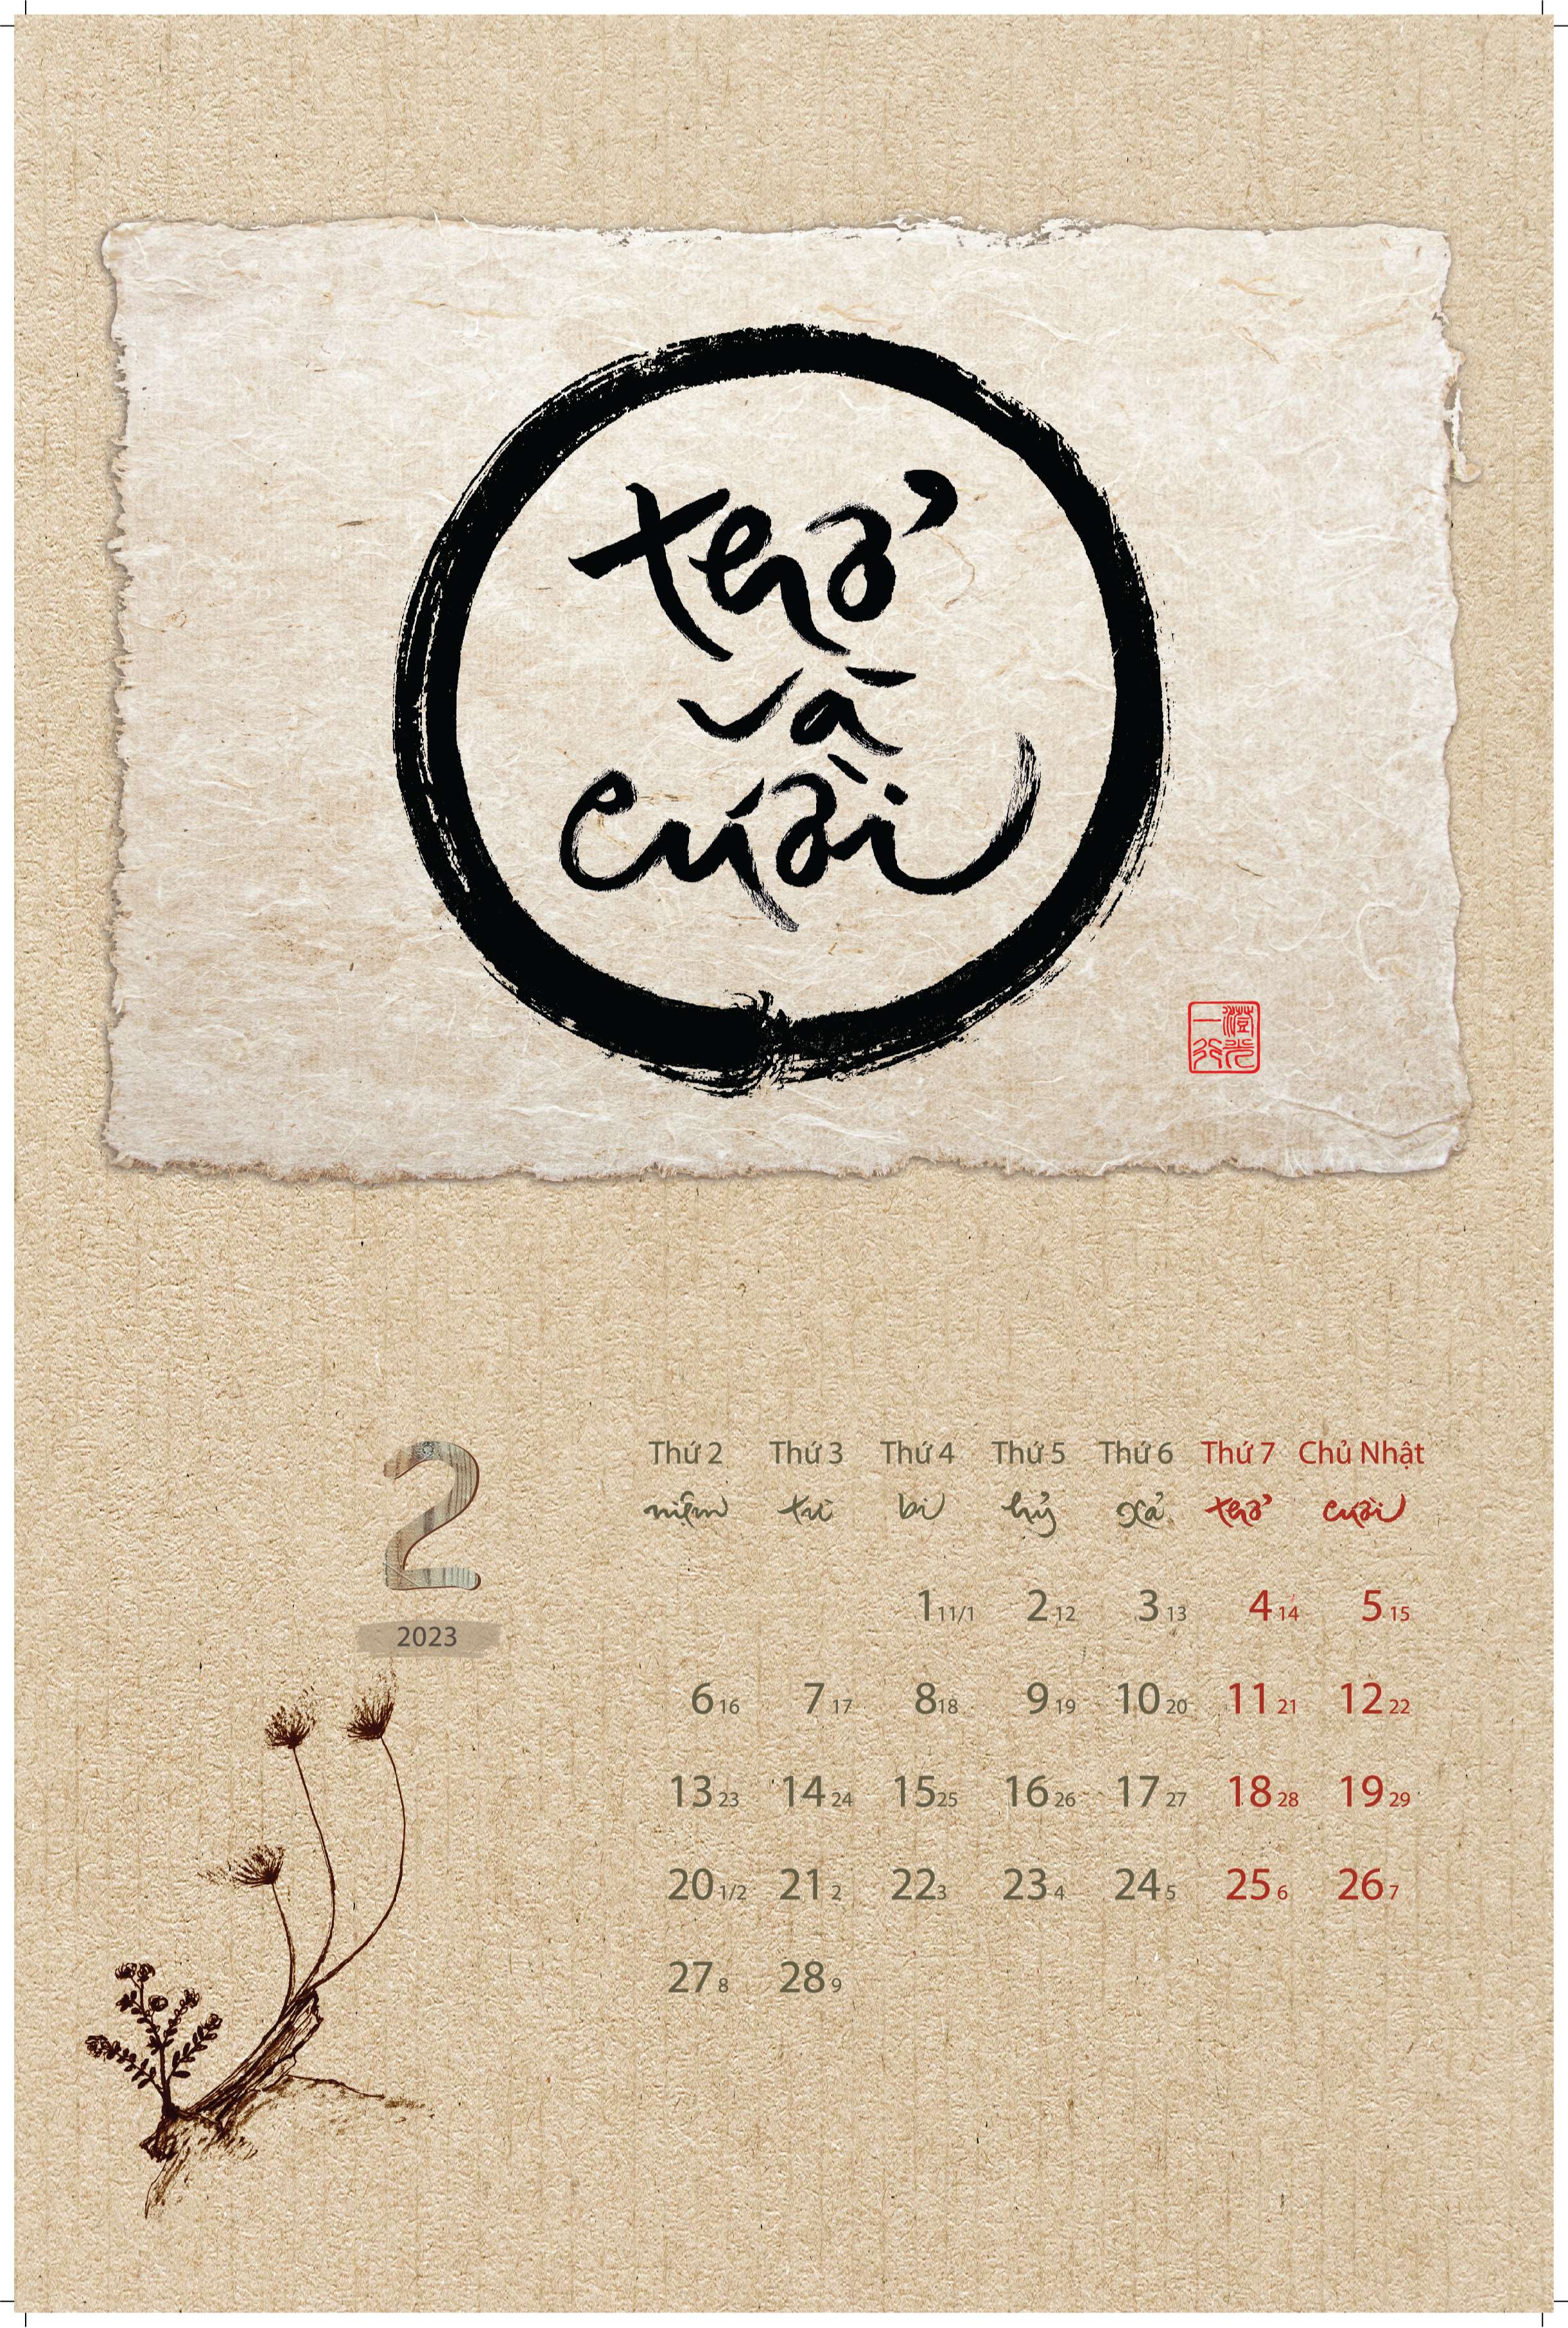 thở
và
cười
一澄
行光
2
2023
Thứ 2 Thứ 3 Thứ 4 Thứ 5 Thứ 6 Thứ 7 Chủ Nhật
niệm từ bi hỷ xả thở cười
1 11/1 2 12 3 13 4 14 5 15
6 16 7 17 8 18 9 19 10 20 11 21 12 22
13 23 14 24 15 25 16 26 17 27 18 28 19 29
20 1/2 21 2 22 3 23 4 24 5 25 6 26 7
27 8 28 9